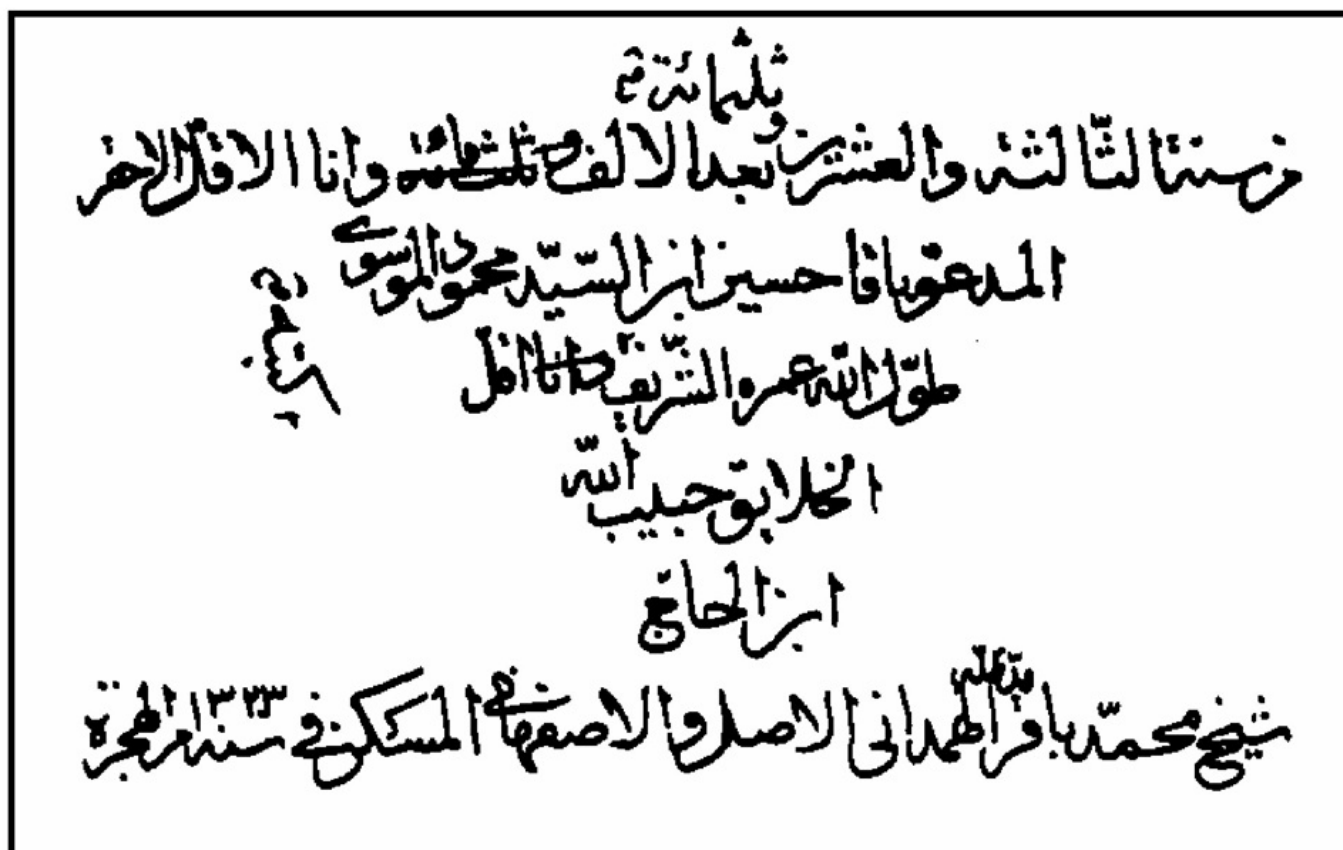 وثلثمائة صح
من سنة الثّالثة والعشرين بعد الالف وثلثمائة وانا الاقلّ الاحقر
المدعوّ باقا حسين ابن السّيّد محمود الموسوي
طوّل الله عمره الشّريف وانا اقلّ
الخلایق حبیب الله
ابن الحاجّ
شیخ محمّد باقر الهمدانی الاصل والاصفهانی المسکن فی سنه ۱۳۲۳ من الهجرة